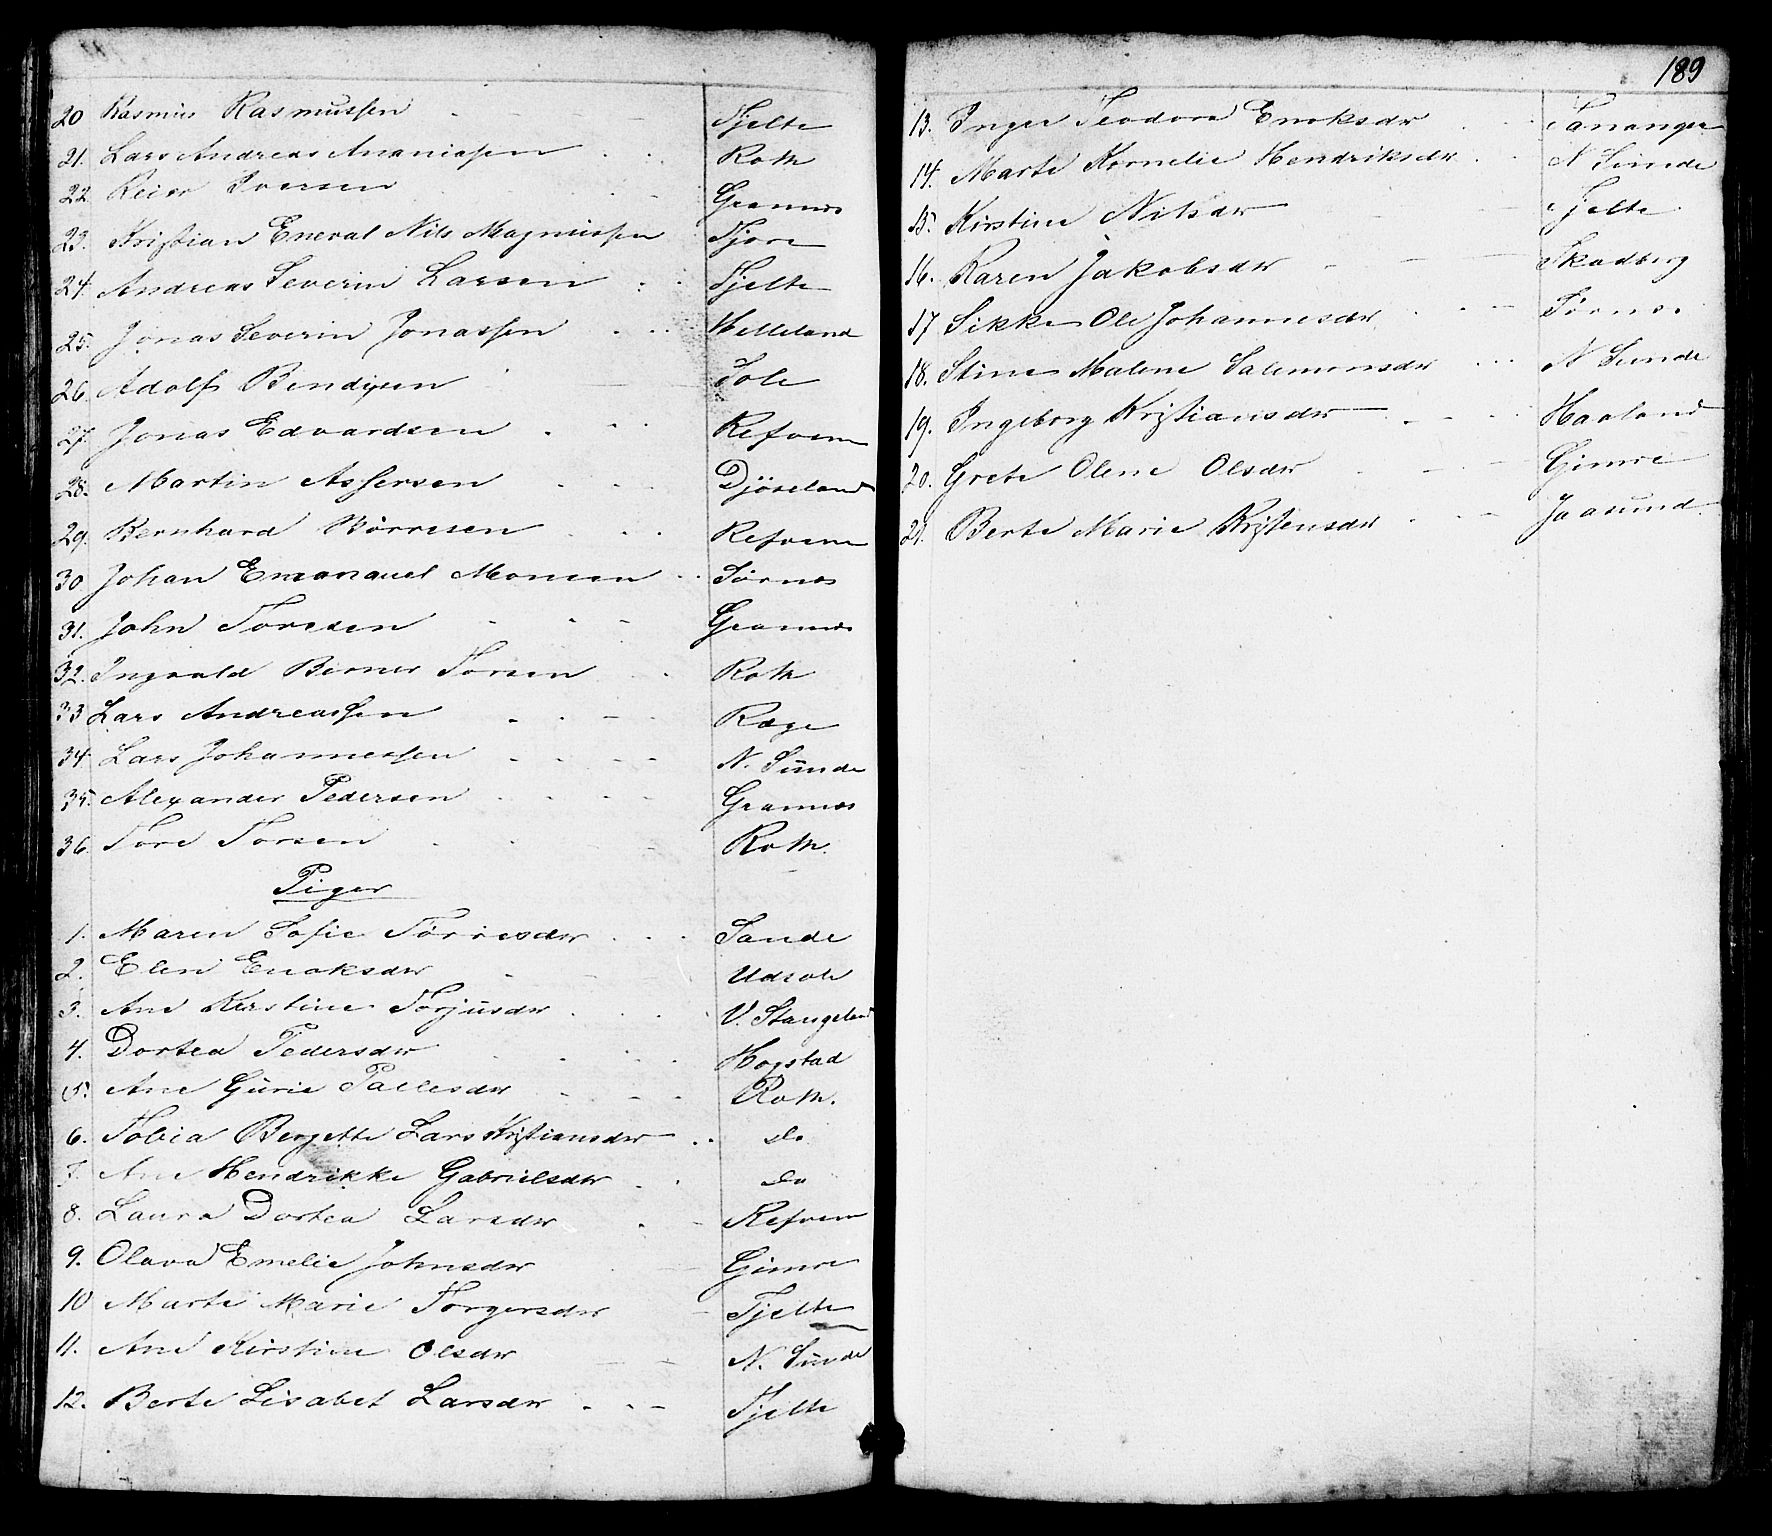 20 Rasmus Rasmussen Tjelte
21. Lars Andreas Ananiassen Roth
22. Reier Iversen Grannes
23. Kristian Eneval Nils Magnussen Tjore
24. Andreas Severin Larsen Tjelte
25. Jonas Severin Jonassen Helleland
26. Adolf Bendixen Sole
27. Jonas Edvardsen Refvem
28. Martin Assersen Djöseland
29. Bernhard Börresen Refvem
30 Johan Emanauel Monsen Sörnes
31. John Toresen Grannes
32. Ingvald Berner Torsen Roth
33 Lars Andreassen Ræge
34. Lars Johannessen N. Sunde
35. Alexander Pedersen Grannes
36. Tore Torsen Roth.
Piger
1. Maren Sofie Törresdtr Sande
2. Elen Enoksdtr Udsole
3. Ane Kirstine Torjusdtr V. Stangeland
4. Dortea Pedersdtr Hogstad
5. Ane Gurie Pallesdtr Roth.
6. Tobia Bergette Lars Kristiansdtr do
7. Ane Hendrikke Gabrielsdtr do
8. Laura Dortea Larsdtr Refvem
9. Olava Emelie Johnsdtr Gimre
10 Marte Marie Torgersdtr Tjelte
11. Ane Kirstine Olsdtr N. Sunde
12. Berte Lisabet Larsdtr Tjelte
189
13. Inger Teodora Enoksdtr Tananger
14. Marte Kornelie Hendriksdtr N Sunde
15. Kirstine Nilsdtr Tjelte
16. Karen Jakobsdtr Skadberg
17 Sikke Ole Johannesdtr Sörnes.
18. Stine Malene Salemonsdtr N Sunde
19. Ingeborg Kristiansdtr Haaland
20. Grete Olene Olsdtr Gimre
21. Berte Marie Kristensdtr Jaasund.